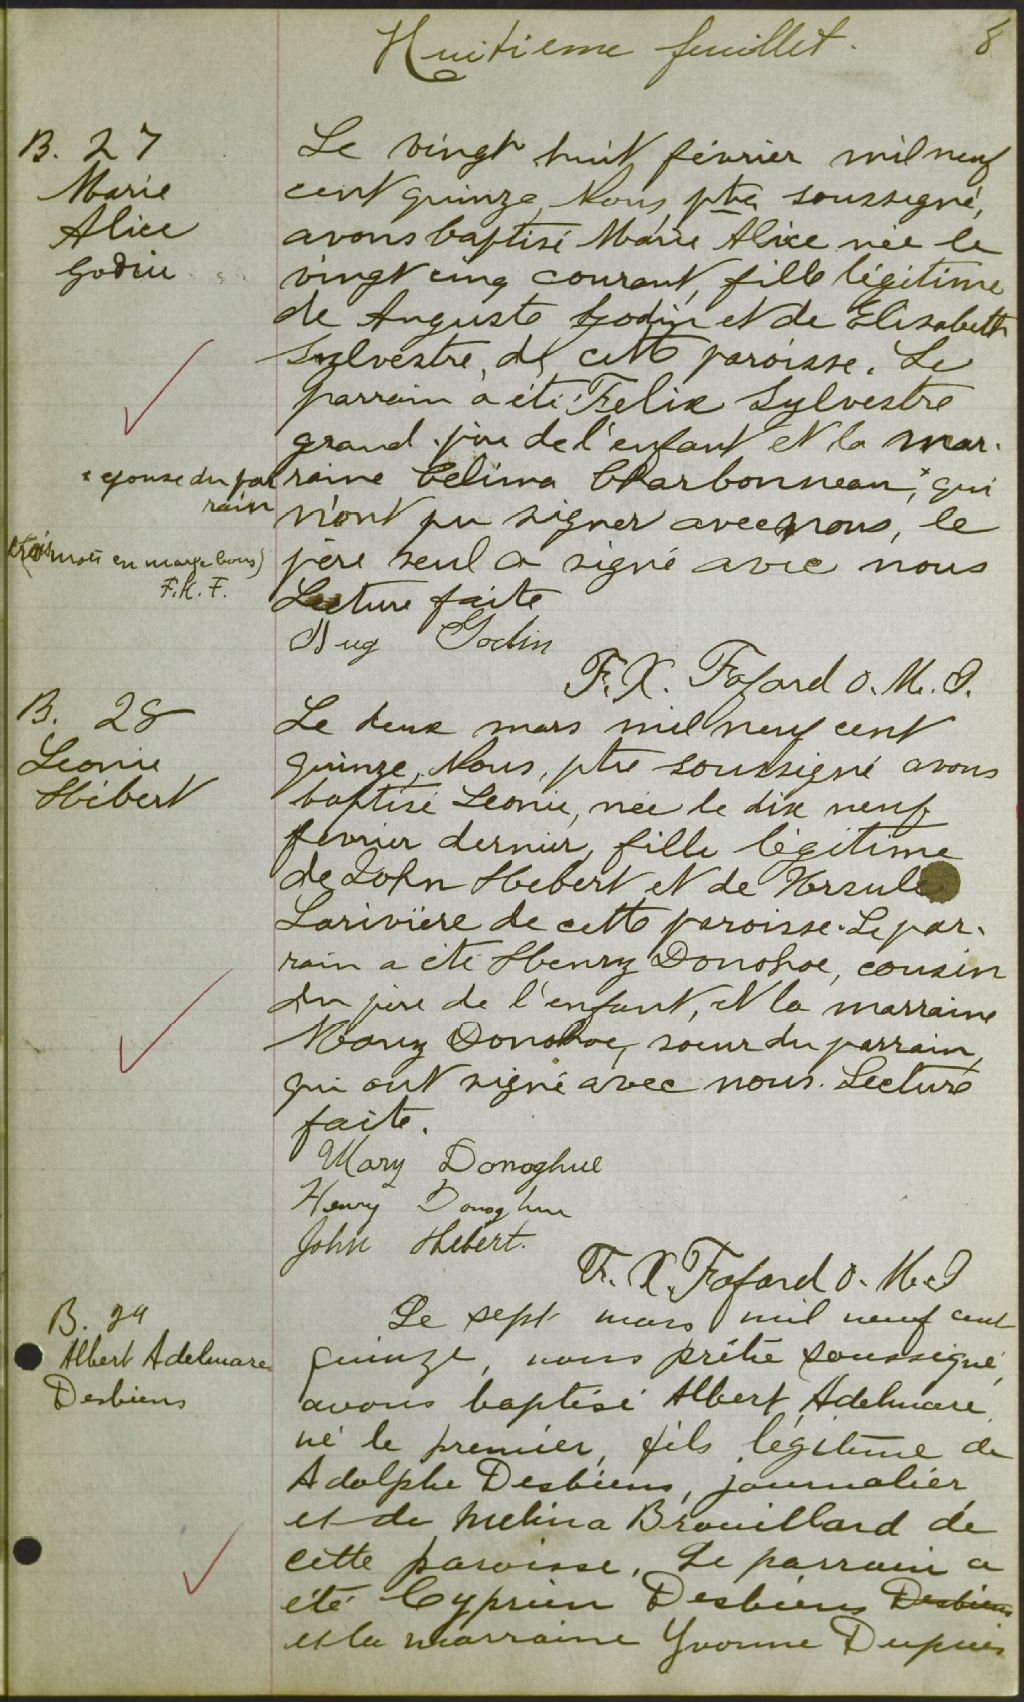 Huitieme feuillet. 8
B. 27
Marie
Alice
Godin
Le vingt huit février mil neuf
cent quinze, Nous, ptre soussigné,
avons baptisé Marie Alice née le
vingt cinq courant, fille légitime
de Auguste Godin et de Elisabeth
Sylvestre, de cette paroisse. Le
parrain a été Felix Sylvestre
grand-père de l'enfant et la mar-
raine Celina Charbonneau,* qui
n'ont pu signer avec nous, le
père seul a signé avec nous
Lecture faite
* epouse du par
rain
(trois mots en marge bons)
F.X.F.
Aug Godin
F. X. Fafard O. M. I.
B. 28
Leonie
Hébert
Le deux mars mil neuf cent
quinze, Nous, ptre soussigné avons
baptisé Leonie, née le dix neuf
fevrier dernier, fille légitime
de John Hebert et de Ursule
Larivière de cette paroisse. Le par-
rain a été Henry Donohoe, cousin
du père de l'enfant, et la marraine
Mary Donohoe, soeur du parrain,
qui ont signé avec nous. Lecture
faite.
Mary Donoghue
Henry Donoghue
John Hebert.
F. X. Fafard O. M. I
B. 29
Albert Adelmare
Desbiens
Le sept mars mil neuf cent
quinze, nous prêtre soussigné,
avons baptisé Albert, Adelmare
né le premier, fils légitime de
Adolphe Desbiens, journalier
et de Melina Brouillard de
cette paroisse. Le parrain a
été Cyprien Desbiens Desbiens
et la marraine Yvonne Dupuis